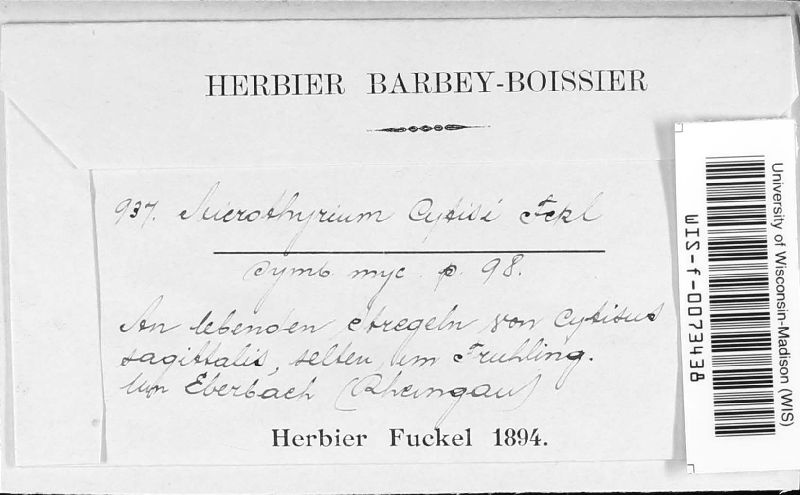 HERBIER BARBEY-BOISSIER
937. Microthyrium Cytisi Fckl
Symb. myc. p. 98.
An lebenden Stegeln von Cytisus
sagittalis, selten, im Fruhling.
Um Eberbach (Rheingau)
Herbier Fuckel 1894.
University of Wisconsin-Madison (WIS)
WIS-f-0073438